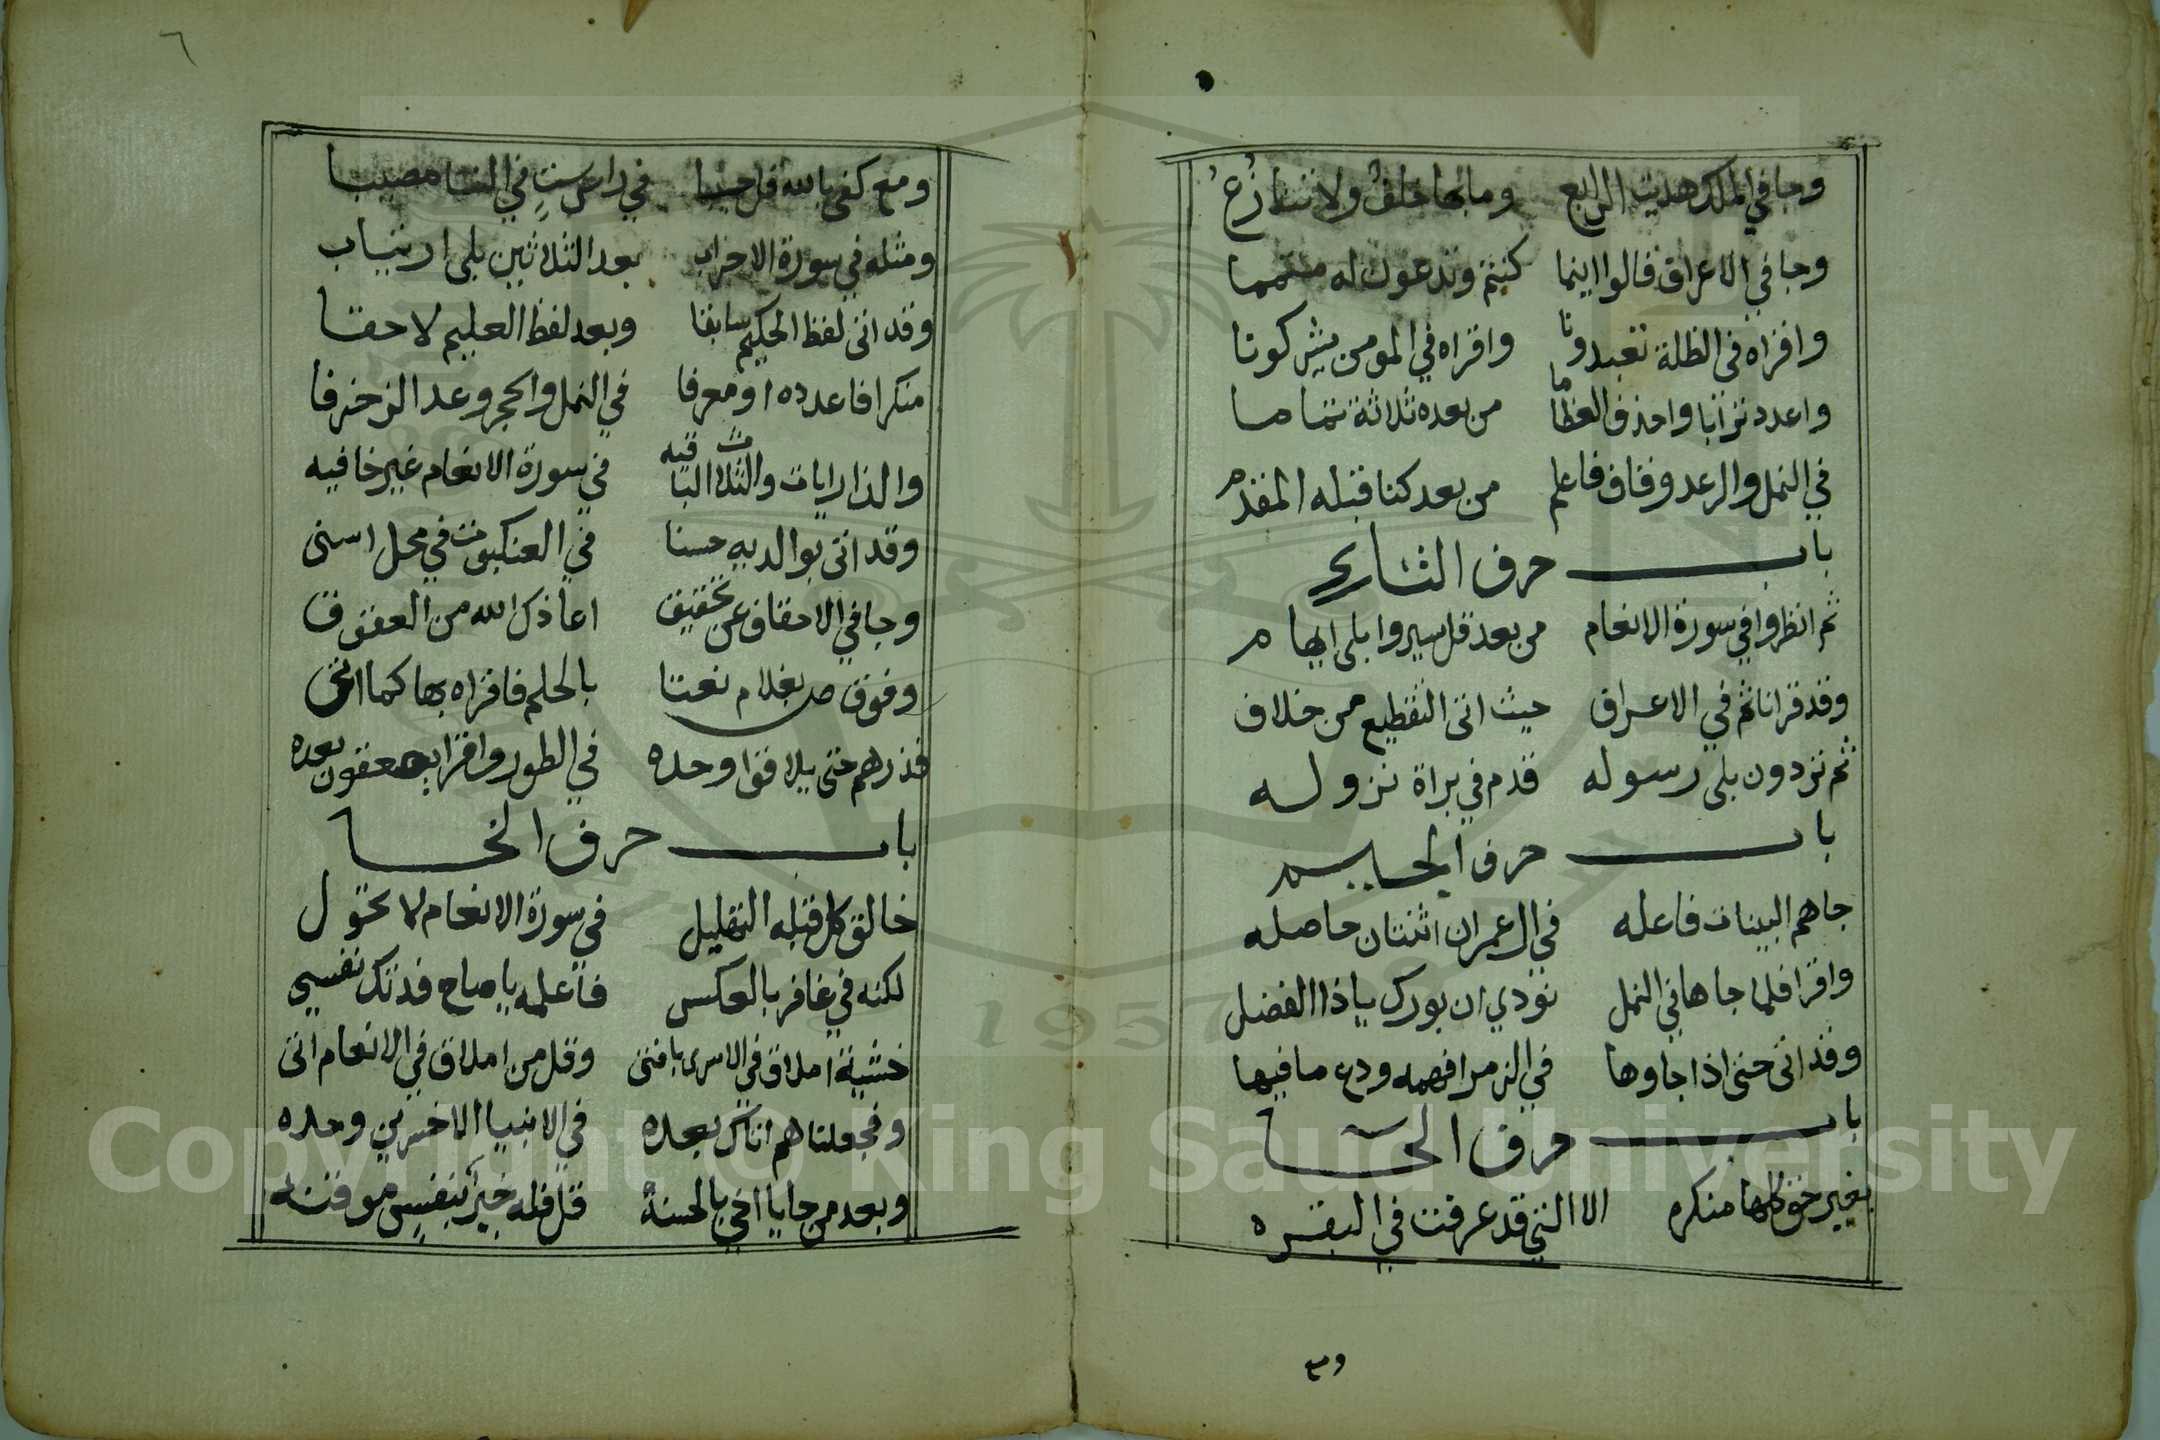 وجا في الملك هديت الرابع وما بها خلف ولا تنازع
وجا في الاعراف قالوا اينما كنتم وتدعون له متمما
واقراه في الظلة تعبدونا واقراه في المومن يشركونا
واعدد ترابا واحذف العظاما من بعده ثلاثة تماما
في النمل والرعد وقاف فاعلم من بعد كنا قبله المقدم
باب حرف الثاء
ثم انظروا في سورة الانعام من بعد قل سيروا بلى ايهام
وقد قرانا ثم في الاعراف حيث اتى التقطيع من خلاف
ثم تردون بلى رسوله قدم في براة نزوله
باب حرف الجيم
جاهم البينات فاعله في ال عمران اثنتان حاصله
واقرا فلما جاها في النمل نودي ان بورك ياذا الفضل
وقد اتى حتى اذا جاوها في الزمر افهمه ودع ما فيها
باب حرف الحا
بغير حق كلها منكره الا التي قد عرفت في البقره
ومع
٦
ومع كفى بالله قل حسيبا في راس ست في النسا مصيبا
ومثله في سورة الاحزاب بعد الثلاثين بلى ارتياب
وقد اتى لفظ الحكيم سابقا وبعد لفظ العليم لاحقا
منكرا فاعدده او معرفا في النمل والحجر وعد الزخرفا
والذاريات والثلاث الباقيه في سورة الانعام غير خافيه
وقد اتى بوالديه حسنا في العنكبوت في محل اسنى
وجا في الاحقاف عن تحقيق اعاذك الله من العقوق
وفوق ص بغلام نعتا بالحلم فاقراه بها كما اتى
فذرهم حتى يلاقوا وحده في الطور واقرا يصعقون بعده
باب حرف الخا
خالق كل قبله التهليل في سورة الانعام لا تحول
لكنه في غافر بالعكس فاعلمه يا صاح فدتك نفسي
خشية املاق في الاسرى يافتى وقل من املاق في الانعام اتى
وفجعلناهم اتاك بعده في الانبيا الاخسرين وحده
وبعد من جا يا اخي بالحسنه قل فله خير بنفس موقنه
Copyright © King Saud University
1957